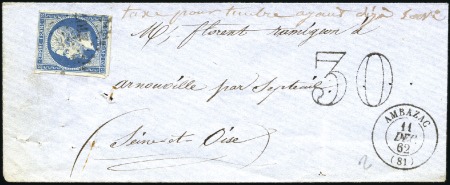 taxe pour timbre ayant déjà servi
M. florent
arnouville par Septeuil
Seine-et-Oise
30
AMBAZAC
11
DEC
62
(81)
2